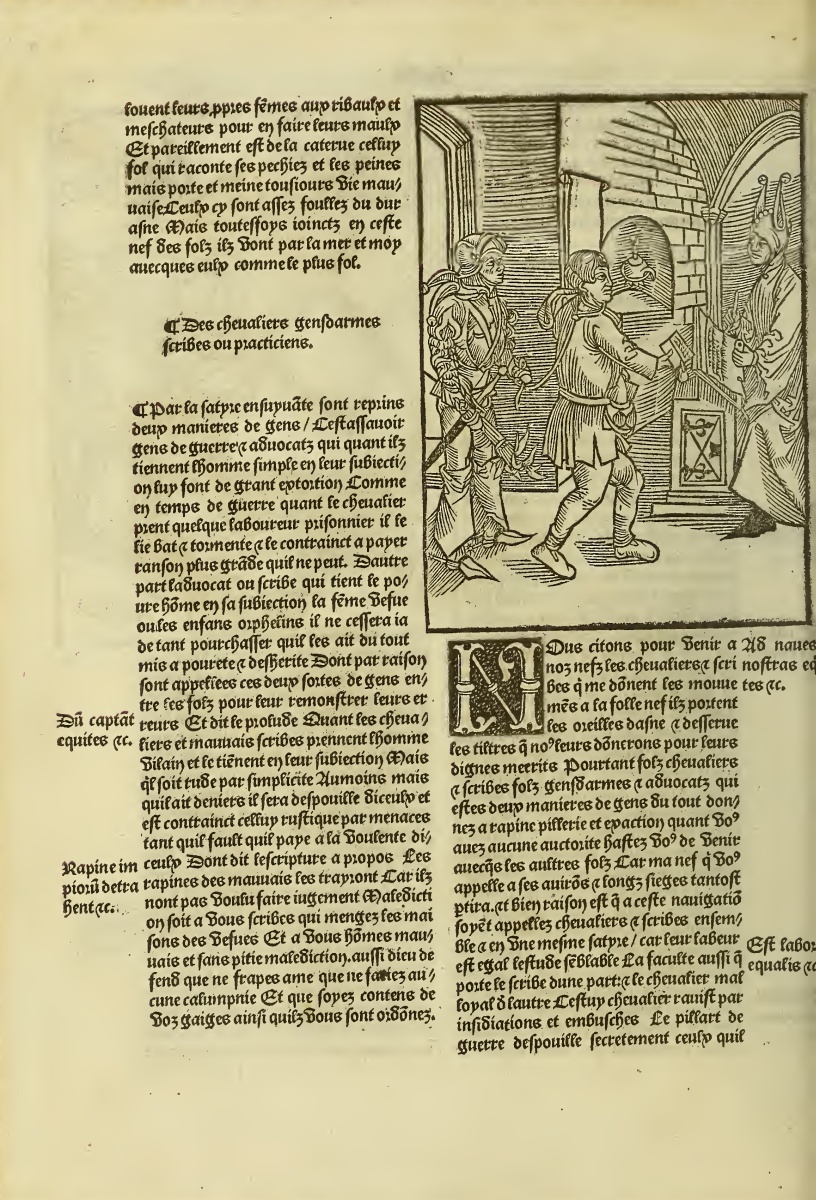 louent leurs ꝓpres fẽmes aux ribaulx et
meschateurs pour en faire leurs maulx
Et pareillement est de la caterue celluy
fol qui raconte ses pechiez et les peines
mais porte et meine tousiours vie mau/
uaise. Ceulx cy sont assez foullez du dur
asne Mais toutesfoys ioinctz en ceste
nef des folz ilz vont par la mer et moy
auecques eulx comme le plus fol.
¶ Des cheualiers gensdarmes
scribes ou practiciens.
¶ Par la satyre ensuyuãte sont reprins
deux manieres de gens / Cestassauoir
gens de guerre ⁊ aduocatz qui quant ilz
tiennent lhomme simple en leur subiecti/
on luy font de grant extortion Comme
en temps de guerre quant le cheualier
prent quelque laboureur prisonnier il le
lie bat ⁊ tormente ⁊ le contrainct a payer
ranson plus grãde quil ne peut. Dautre
part laduocat ou scribe qui tient le po/
ure hõme en sa subiection la fẽme vefue
ou les enfans orphelins il ne cessera ia
de tant pourchasser quil les ait du tout
mis a pourete ⁊ desherite Dont par raison
sont appellees ces deux sortes de gens en/
tre les folz pour leur remonstrer leurs er
reurs Et dit le prosude Quant les cheua/
liers et mauuais scribes prennent lhomme
villain et le tiẽnent en leur subiection Mais
q̃l soit rude par simplicite Aumoins mais
quil ait deniers il sera despouille diceulx et
est contrainct celluy rustique par menaces
tant quil fault quil paye a la voulente di/
ceulx Dont dit lescripture a propos Les
rapines des mauuais les trayront Car ilz
nont pas voulu faire iugement Maledicti
on soit a vous scribes qui mengez les mai
sons des vefues Et a vous hõmes mau/
uais et sans pitie malediction. aussi dieu de
fend que ne frapes ame que ne faciez au/
cune calumpnie Et que soyez contens de
voz gaiges ainsi quilz vous sont ordõnez.
Dũ captãt
equites ⁊c.
Rapine im
piorũ detra
hent ⁊c.
NOus citons pour venir a
noz nefz les cheualiers ⁊ scri
bes q̃ me dõnent les mouue
mẽs a la folle nef ilz portent
les oreilles dasne ⁊ desserue
les tiltres q̃ noꝰ leurs dõnerons pour leurs
dignes meerits Pourtant folz cheualiers
⁊ scribes folz gensdarmes ⁊ aduocatz qui
estes deux manieres de gens du tout don/
nez a rapine pillerie et exaction quant voꝰ
auez aucune auctorite hastez voꝰ de venir
auecq̃s les aultres folz Car ma nef q̃ voꝰ
appelle a ses auirõs ⁊ longz sieges tantost
ptira. ⁊t bien raison est q̃ a ceste nauigatiõ
soyẽt appellez cheualiers ⁊ scribes ensem/
ble ⁊ en vne mesme satyre / car leur labeur
est egal lestude sẽblable La faculte aussi q̃
porte le scribe dune part: ⁊ le cheualier mal
loyal d̃ lautre Cestuy cheualier rauist par
insidiations et embusches Le pillart de
guerre despouille secretement ceulx quil
Ad naues
nostras eq
tes ⁊c.
Est labor
equalis ⁊c